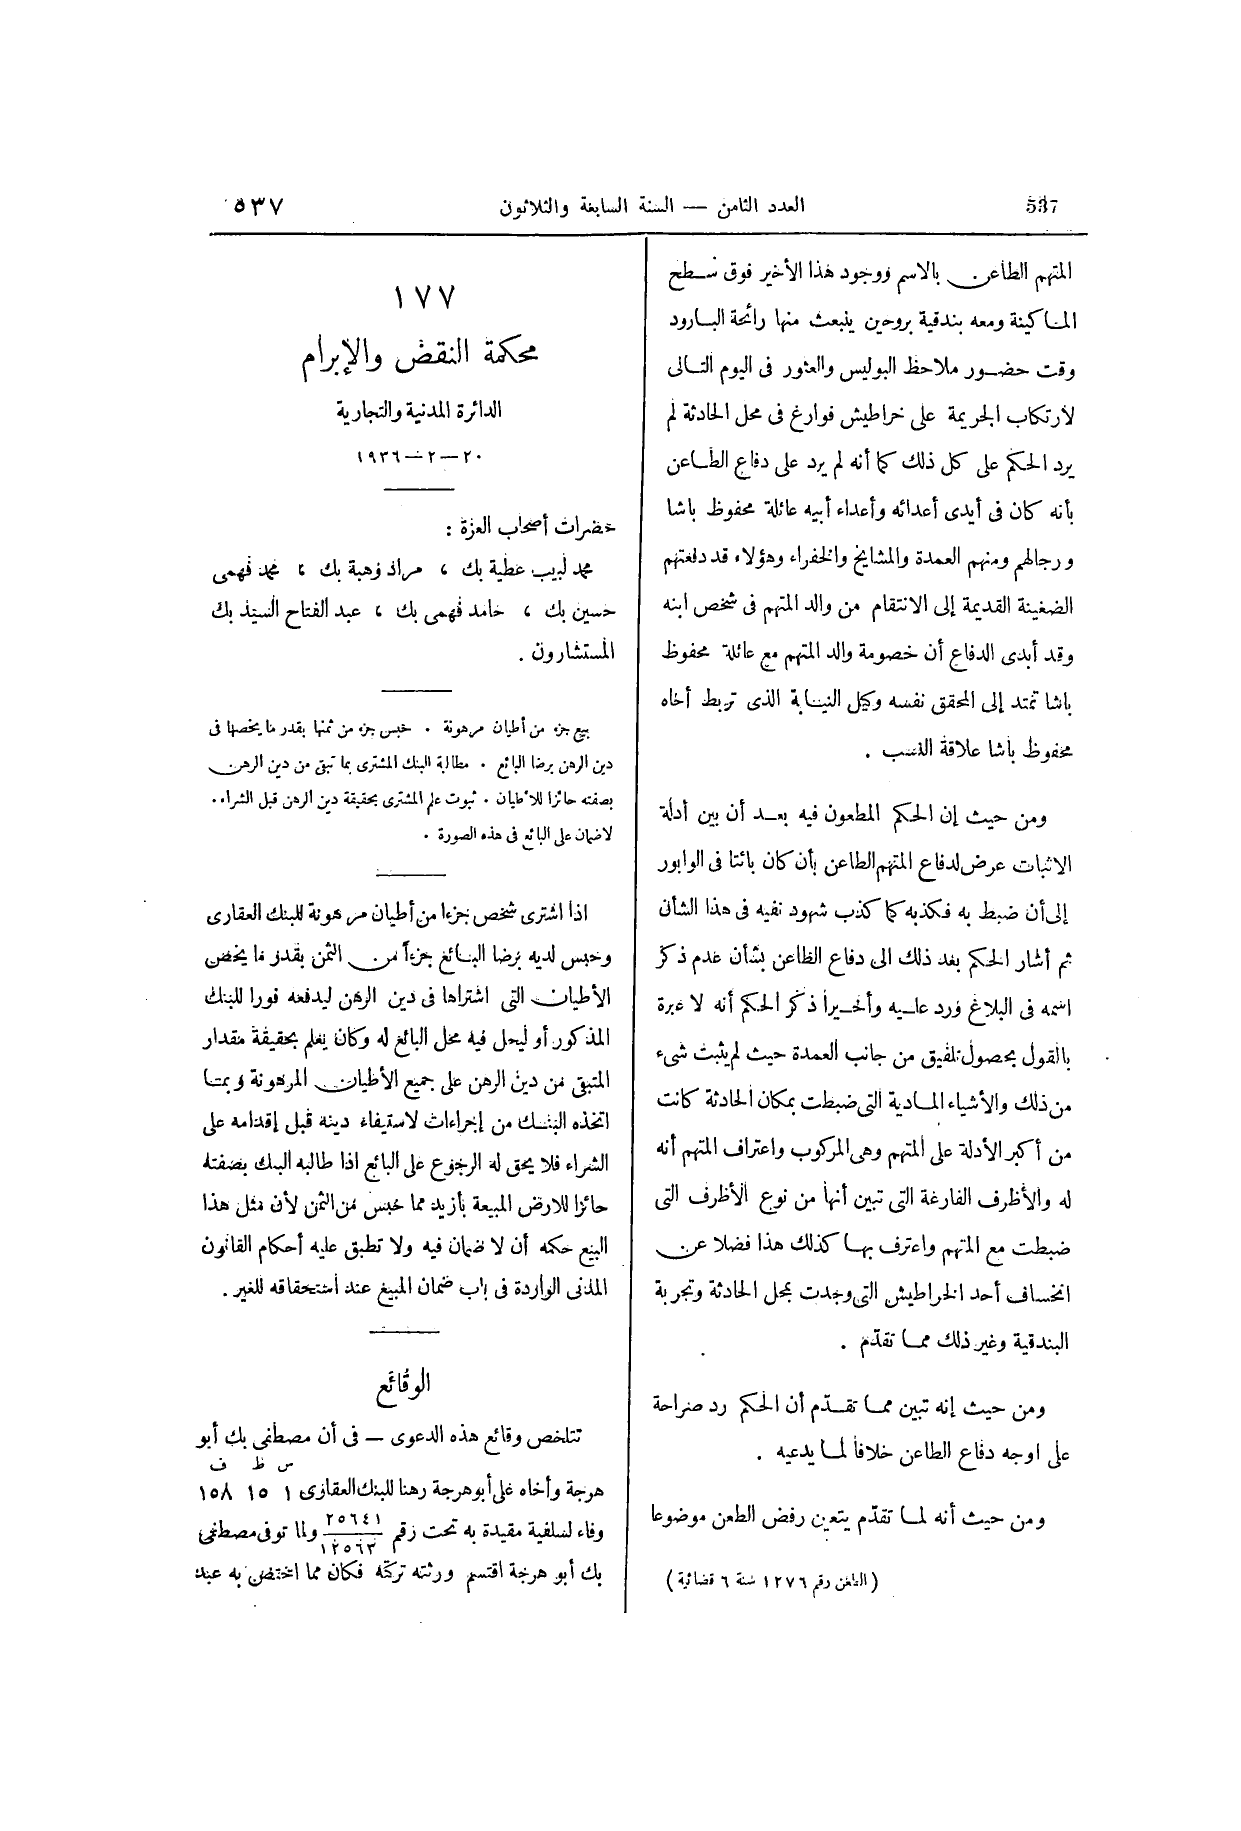 537
العدد الثامن — السنة السابعة والثلاثون
٥٣٧
المتهم الطاعن بالاسم ووجود هذا الأخير فوق سطح
الماكينة ومعه بندقية بروحين ينبعث منها رائحة البارود
وقت حضور ملاحظ البوليس والعثور فى اليوم التالى
لارتكاب الجريمة على خراطيش فوارغ فى محل الحادثة لم
يرد الحكم على كل ذلك كما أنه لم يرد على دفاع الطاعن
بأنه كان فى أيدى أعدائه وأعداء أبيه عائلة محفوظ باشا
ورجالهم ومنهم العمدة والمشايخ والخفراء وهؤلاء قد دفعتهم
الضغينة القديمة إلى الانتقام من والد المتهم فى شخص ابنه
وقد أبدى الدفاع أن خصومة والد المتهم مع عائلة محفوظ
باشا تمتد إلى المحقق نفسه وكيل النيابة الذى تربط أخاه
محفوظ باشا علاقة النسب .
ومن حيث إن الحكم المطعون فيه بعد أن بين أدلة
الاثبات عرض لدفاع المتهم الطاعن بأن كان بائتا فى الوابور
إلى أن ضبط به فكذبه كما كذب شهود نفيه فى هذا الشأن
ثم أشار الحكم بعد ذلك الى دفاع الطاعن بشأن عدم ذكر
اسمه فى البلاغ ورد عليه وأخيراً ذكر الحكم أنه لا عبرة
بالقول بحصول تلفيق من جانب العمدة حيث لم يثبت شىء
من ذلك والأشياء المادية التى ضبطت بمكان الحادثة كانت
من أكبر الأدلة على المتهم وهى المركوب واعتراف المتهم أنه
له والأظرف الفارغة التى تبين أنها من نوع الأظرف التى
ضبطت مع المتهم واعترف بها كذلك هذا فضلا عن
انخساف أحد الخراطيش التى وجدت بمحل الحادثة وتجربة
البندقية وغير ذلك مما تقدّم .
ومن حيث إنه تبين مما تقدّم أن الحكم رد صراحة
على اوجه دفاع الطاعن خلافاً لما يدعيه .
ومن حيث أنه لما تقدّم يتعين رفض الطعن موضوعا
( الطعن رقم ١٢٧٦ سنة ٦ قضائية )
١٧٧
محكمة النقض والإبرام
الدائرة المدنية والتجارية
٢٠—٢—١٩٣٦
حضرات أصحاب العزة :
محمد لبيب عطية بك ، مراد وهبة بك ، محمد فهمى
حسين بك ، حامد فهمى بك ، عبد الفتاح السيد بك
المستشارون .
بيع جزء من أطيان مرهونة . حبس جزء من ثمنها بقدر ما يخصها فى
دين الرهن برضا البائع . مطالبة البنك المشترى بما تبقى من دين الرهن
بصفته حائزا للأطيان . ثبوت علم المشترى بحقيقة دين الرهن قبل الشراء .
لاضمان على البائع فى هذه الصورة .
اذا اشترى شخص جزءا من أطيان مرهونة للبنك العقارى
وحبس لديه برضا البائع جزءاً من الثمن بقدر ما يخص
الأطيان التى اشتراها فى دين الرهن ليدفعه فورا للبنك
المذكور أو ليحل فيه محل البائع له وكان يعلم بحقيقة مقدار
المتبقى من دين الرهن على جميع الأطيان المرهونة وبما
اتخذه البنك من إجراءات لاستيفاء دينه قبل إقدامه على
الشراء فلا يحق له الرجوع على البائع اذا طالبه البنك بصفته
حائزا للارض المبيعة بأزيد مما حبس من الثمن لأن مثل هذا
البيع حكمه أن لا ضمان فيه ولا تطبق عليه أحكام القانون
المدنى الواردة فى باب ضمان المبيع عند استحقاقه للغير .
الوقائع
تتلخص وقائع هذه الدعوى — فى أن مصطفى بك أبو
س ط ف
هرجة وأخاه على أبو هرجة رهنا للبنك العقارى ١ ١٥ ١٥٨
وفاء لسلفية مقيدة به تحت رقم ٢٥٦٤١/١٢٥٦٣ ولما توفى مصطفى
بك أبو هرجة اقتسم ورثته تركته فكان مما اختص به عبد